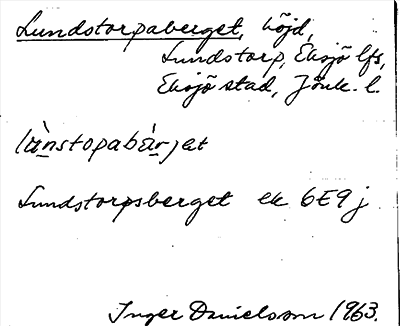 Lundstorpaberget, höjd,
Lundstorp, Eksjö lfs,
Eksjö stad, Jönk. l.
lànstopabárjet
Lundstorpsberget ek 6E9j
Inger Danielsson 1963.